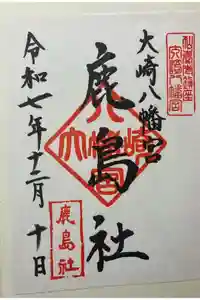 大崎八幡宮
鹿島社
令和七年十二月十日
鹿島社